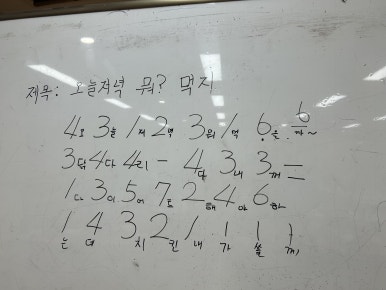 제목: 오늘저녁 뭐? 먹지
4오 3늘 1저 2녁 3뭐 1먹 6을 6까~
3닭 4다 4리 - 4다 3내 3꺼 =
1다 3이 5어 7트 2해 4야 6하
1는 4데 3치 2킨 1내 1가 1쏠 1께